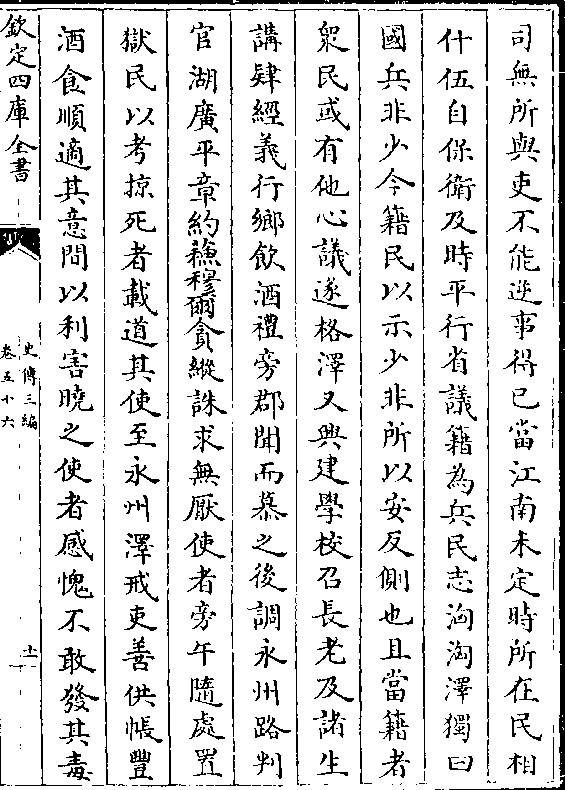 司無所與吏不能逆事得已當江南未定時所在民相
什伍自保衛及時平行省議籍為兵民志洶洶澤獨曰
國兵非少今籍民以示少非所以安反側也且當籍者
衆民或有他心議遂格澤又興建學校召長老及諸生
講肄經義行鄉飲酒禮旁郡聞而慕之後調永州路判
官湖廣平章約蘇穆爾貪縱誅求無厭使者旁午隨處置
獄民以考掠死者載道其使至永州澤戒吏善供帳豐
酒食順適其意間以利害曉之使者感愧不敢發其毒
欽定四庫全書
史傳三編
卷五十六
十一